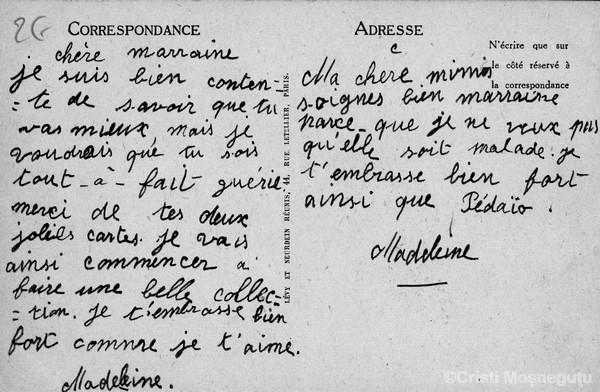 26
CORRESPONDANCE
chère marraine
je suis bien conten-
=te de savoir que tu
vas mieux, mais je
voudrais que tu sois
tout-à-fait guérie
merci de tes deux
jolies cartes. je vais
ainsi commencer à
faire une belle collec-
=tion. je t'embrasse bien
fort comme je t'aime.
Madeleine.
LÉVY ET NEURDEIN RÉUNIS, 44, RUE LETELLIER, PARIS.
ADRESSE
N'écrire que sur
le côté réservé à
la correspondance
Ma chere mimis
soignes bien marraine
parce-que je ne veux pas
qu'elle soit malade. je
t'embrasse bien fort
ainsi que Pédaïo.
Madeleine
©Cristi Moșneguțu